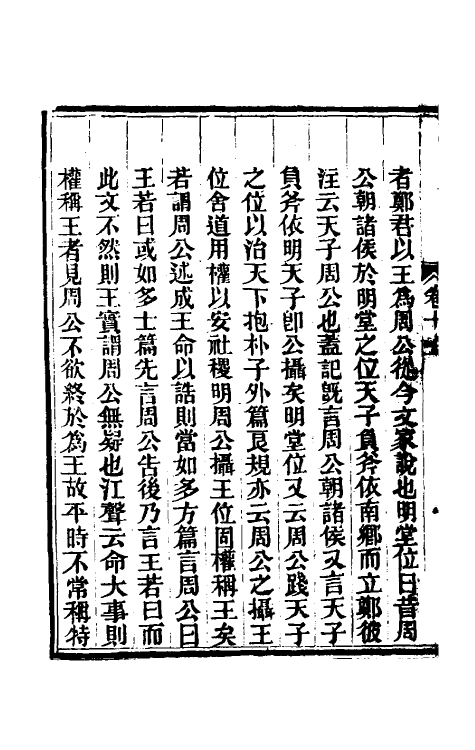 者鄭君以王爲周公從今文家說也明堂位曰昔周
公朝諸侯於明堂之位天子負斧依南鄉而立鄭彼
注云天子周公也蓋記旣言周公朝諸侯又言天子
負斧依明天子卽公攝矣明堂位又云周公踐天子
之位以治天下抱朴子外篇良規亦云周公之攝王
位舍道用權以安社稷明周公攝王位固權稱王矣
若謂周公述成王命以誥則當如多方篇言周公曰
王若曰或如多士篇先言周公告後乃言王若曰而
此文不然則王實謂周公無疑也江聲云命大事則
權稱王者見周公不欲終於爲王故平時不常稱特
卷十